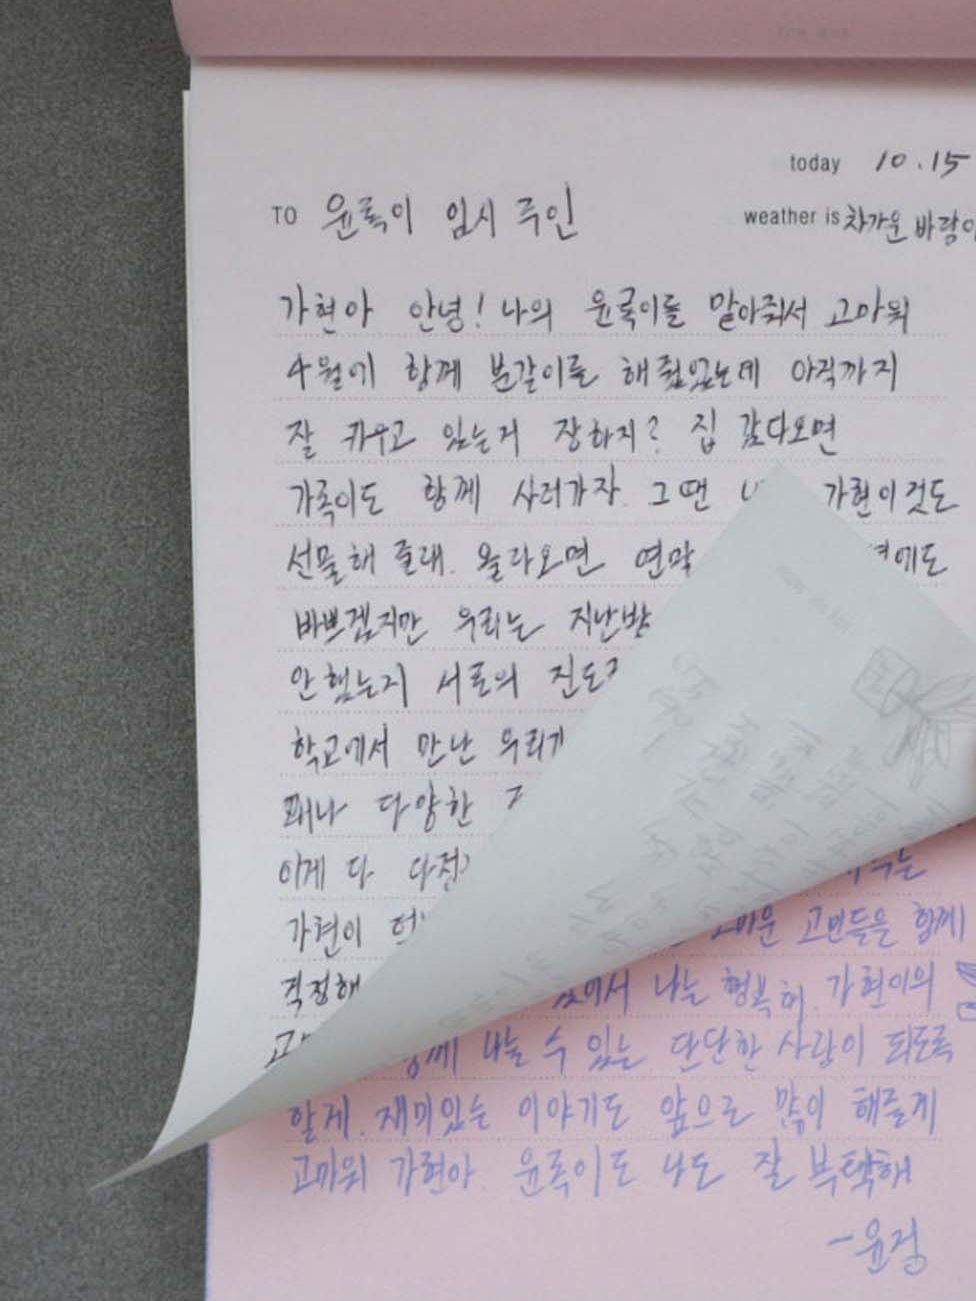 today 10.15
TO 윤록이 임시 주인
weather is 차가운 바람이
가현아 안녕! 나의 윤록이를 맡아줘서 고마워
4월에 함께 분갈이를 해줬었는데 아직까지
잘 키우고 있는거 장하지? 집 갔다오면
가족이도 함께 사러가자. 그땐 가현이것도
선물해 줄래. 올라오면 연막
바쁘겠지만 우리는 지난밤
안했는지 서로의 진도
학교에서 만난 우리가
꽤나 다양한
이게 다 다정
가현이
걱정해
고민들을 함께
있어서 나는 행복해. 가현이의
함께 나눌 수 있는 단단한 사람이 되도록
할게. 재미있는 이야기도 앞으로 많이 해줄게
고마워 가현아. 윤록이도 나도 잘 부탁해
-윤정